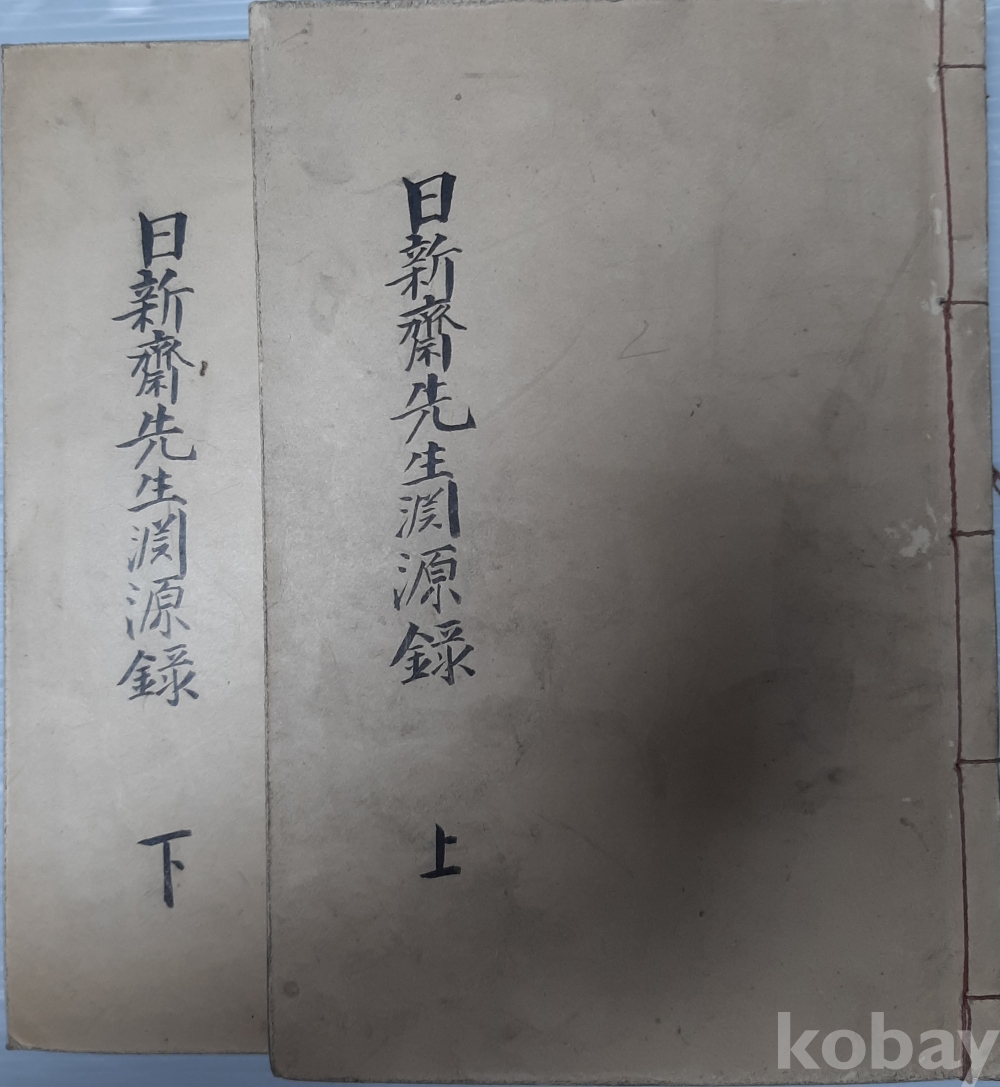 日新齋先生淵源錄
上
日新齋先生淵源錄
下
kobay